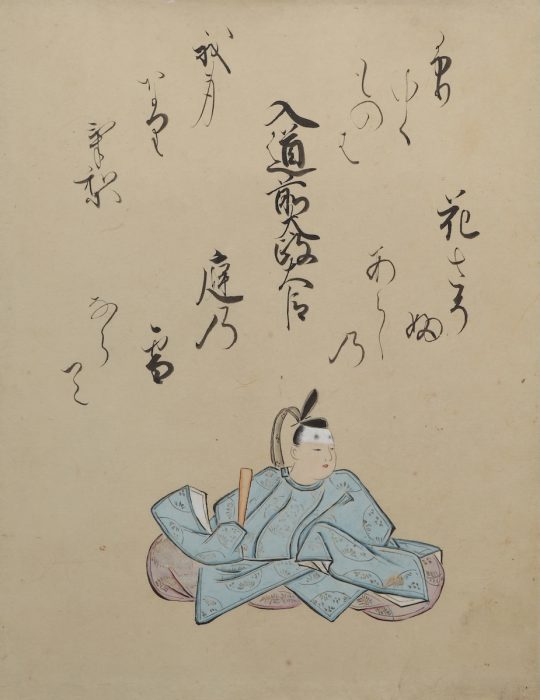 花さそ
婦
あらし
乃
庭乃
雪
なら
て
ふり
ゆく
ものは
我身
なり
けり
入道前太政大臣